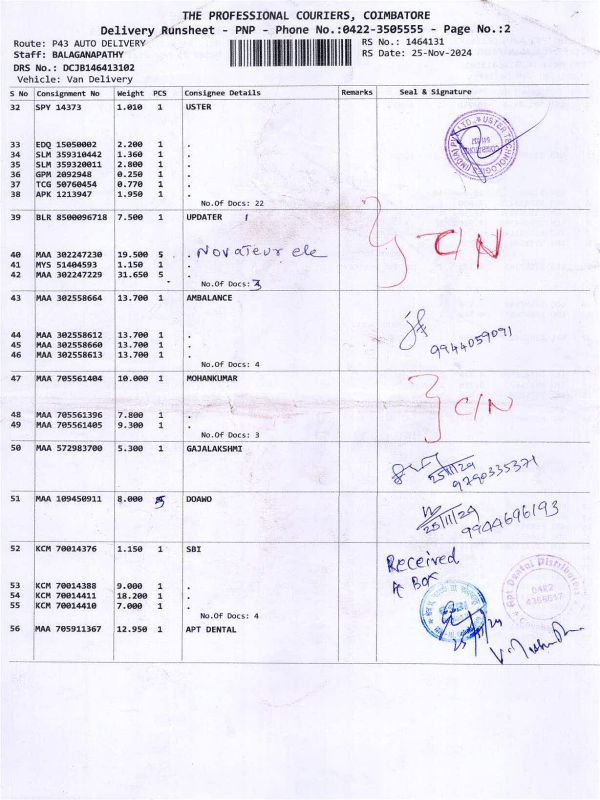 THE PROFESSIONAL COURIERS, COIMBATORE
Delivery Runsheet - PNP - Phone No.:0422-3505555 - Page No.:2
Route: P43 AUTO DELIVERY RS No.: 1464131
Staff: BALAGANAPATHY RS Date: 25-Nov-2024
DRS No.: DCJB146413102
Vehicle: Van Delivery
S No Consignment No Weight PCS Consignee Details Remarks Seal & Signature
32 SPY 14373 1.010 1 USTER
USTER TECHNOLOGIES (INDIA) PVT. LTD.
33 EDQ 15050002 2.200 1 .
34 SLM 359310442 1.360 1 .
35 SLM 359320011 2.800 1 .
36 GPM 2092948 0.250 1 .
37 TCG 50760454 0.770 1 .
38 APK 1213947 1.950 1 .
No.Of Docs: 22
39 BLR 8500096718 7.500 1 UPDATER 1
C/N
40 MAA 302247230 19.500 5 . Novateur ele
41 MYS 51404593 1.150 1 .
42 MAA 302247229 31.650 5 .
No.Of Docs: 3
43 MAA 302558664 13.700 1 AMBALANCE
44 MAA 302558612 13.700 1 .
9944059091
45 MAA 302558660 13.700 1 .
46 MAA 302558613 13.700 1 .
No.Of Docs: 4
47 MAA 705561404 10.000 1 MOHANKUMAR
C/N
48 MAA 705561396 7.800 1 .
49 MAA 705561405 9.300 1 .
No.Of Docs: 3
50 MAA 572983700 5.300 1 GAJALAKSHMI
25/11/24
9790335371
51 MAA 109450911 8.000 5 DOAWO
25/11/24 9944696193
52 KCM 70014376 1.150 1 SBI
Received
Box
53 KCM 70014388 9.000 1 .
54 KCM 70014411 18.200 1 .
55 KCM 70014410 7.000 1 .
No.Of Docs: 4
Apt Dental Distributors
0422
56 MAA 705911367 12.950 1 APT DENTAL